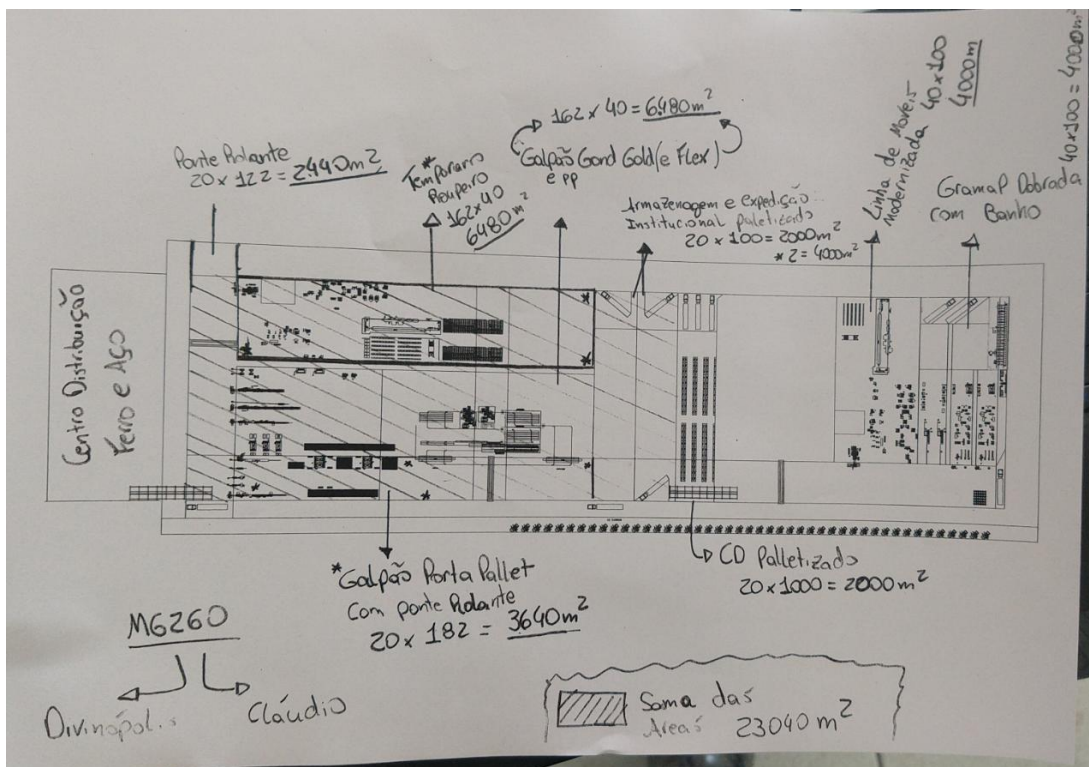 Ponte Rolante
20 x 122 = 2440m²
* Temporario
Roupeiro
162x40
6480m²
162 x 40 = 6480m²
Galpão Gond Gold (e Flex)
e PP
Armazenagem e Expedição
Institucional Paletizado
20 x 100 = 2000m²
* 2 = 4000m²
Linha de Moveis 40x100
Modernizada 4000m
40x100 = 4000m²
Dobrada
com Banho
Centro Distribuição
Ferro e Aço
* Galpão Porta Pallet
Com ponte Rolante
20 x 182 = 3640m²
CD Palletizado
20 x 1000 = 2000m²
MG260
Divinópolis
Cláudio
Soma das
Areas 23040m²